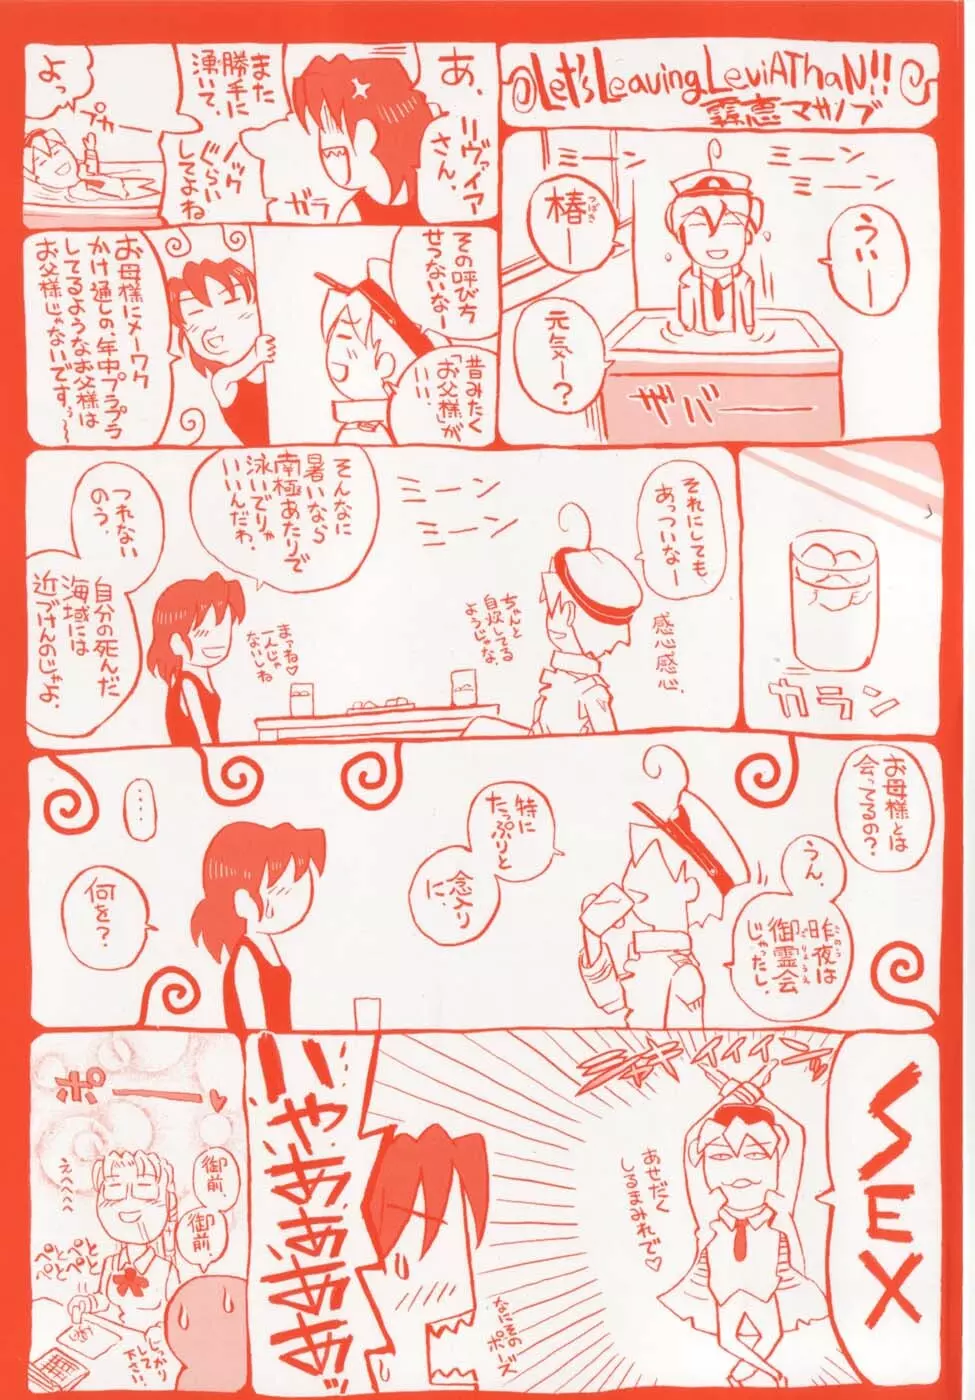 Let's Leaving LeviAThaN!!
霧恵マサノブ
ミーン
ミーン
ミーン
うぃー
椿ー
つばき
元気ー?
ザバーー
あ、
リヴァイア
さん。
ガラ
また
勝手に
湧いて、
ノック
ぐらい
してよね
プカー
よっ
その呼び方
せつないなー
昔みたく
「お父様」が
いい。
お母様にメーワク
かけ通しの、年中プラプラ
してるようなお父様は
お父様じゃないですぅ〜
カラン
それにしても
あっついなー
感心感心。
ちゃんと
自炊してる
ようじゃな。
ミーン
ミーン
そんなに
暑いなら
南極あたりで
泳いでりゃ
いいんだわ。
まァね♡
一人じゃ
ないしね
つれない
のう。
自分の死んだ
海域には
近づけんのじゃよ。
お母様とは
会ってるの?
うん。
昨夜は
このう
御霊会
ごりょうえ
じゃったし。
特に
たっぷりと
念入り
に、
・・・・
何を?
SEX
シャキィィィンッ
あせだく
しるまみれで♡
なにその
ポーズ
いやあああああぁっ
ポーー♥
えへへへへ
御前、
御前。
ぺとぺと
ぺとぺと
しっかり
して
下さい!